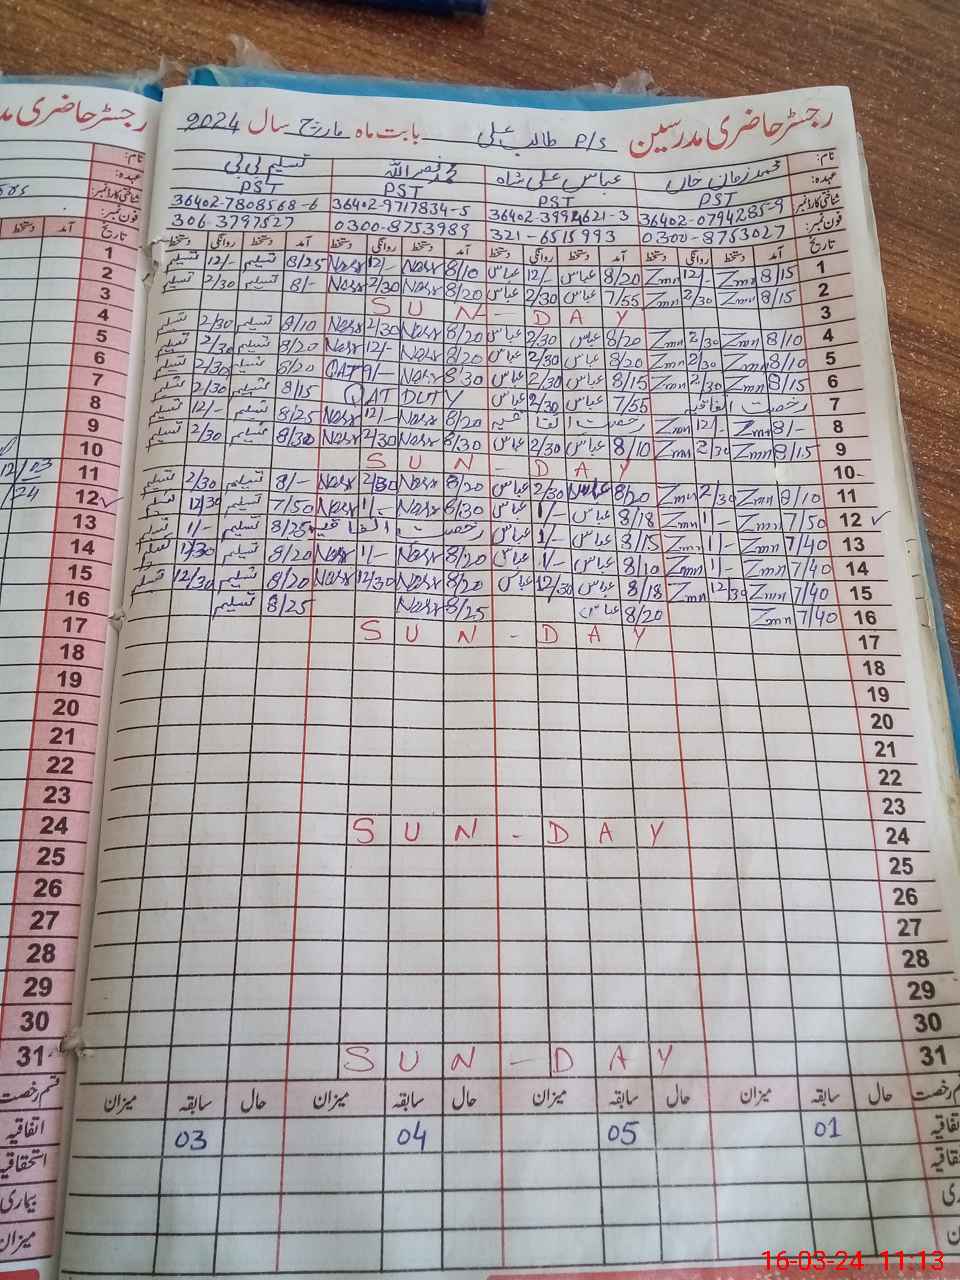 رجسٹر حاضری مدرسین P/S طالب علی بابت ماہ مارچ سال 2024
رجسٹر حاضری مد
نام: محمد زمان خاں عباس علی شاہ محمد نصر اللہ تسلیم بی بی
عہدہ: PST PST PST PST
شناختی کارڈ نمبر: 36402-0794285-9 36402-3994621-3 36402-9717834-5 36402-7808568-6
فون نمبر: 0300-8753027 321-6515993 0300-8753989 306-3797527
تاریخ آمد دستخط روانگی دستخط آمد دستخط روانگی دستخط آمد دستخط روانگی دستخط آمد دستخط روانگی دستخط
1 8/15 Zmn 12/- Zmn 8/20 عباس 12/- عباس 8/10 Nasr 12/- Nasr 8/25 تسلیم 12/- تسلیم 1
2 8/15 Zmn 2/30 Zmn 7/55 عباس 2/30 عباس 8/20 Nasr 2/30 Nasr 8/- تسلیم 2/30 تسلیم 2
3 SUN-DAY 3
4 8/10 Zmn 2/30 Zmn 8/20 عباس 2/30 عباس 8/20 Nasr 2/30 Nasr 8/10 تسلیم 2/30 تسلیم 4
5 8/10 Zmn 2/30 Zmn 8/20 عباس 2/30 عباس 8/20 Nasr 12/- Nasr 8/20 تسلیم 2/30 تسلیم 5
6 8/15 Zmn 2/30 Zmn 8/15 عباس 2/30 عباس 8/30 Nasr 9/- QAT تسلیم 2/30 تسلیم 6
7 رخصت اتفاقیہ 7/55 عباس 2/30 عباس QAT DUTY 8/15 تسلیم 2/30 تسلیم 7
8 8/- Zmn 12/- Zmn رخصت اتفاقیہ 8/20 Nasr 12/- Nasr 8/25 تسلیم 12/- تسلیم 8
9 8/15 Zmn 2/30 Zmn 8/10 عباس 2/30 عباس 8/30 Nasr 2/30 Nasr 8/30 تسلیم 2/30 تسلیم 9
10 SUN-DAY 10
11 8/10 Zmn 2/30 Zmn 8/20 عباس 2/30 عباس 8/20 Nasr 2/30 Nasr 8/- تسلیم 2/30 تسلیم 11
12 ✓ 7/50 Zmn 1/- Zmn 8/18 عباس 1/- عباس 8/30 Nasr 1/- Nasr 7/50 تسلیم 12/30 تسلیم 12 ✓
13 7/40 Zmn 1/- Zmn 8/15 عباس 1/- عباس رخصت اتفاقیہ 8/25 تسلیم 1/- تسلیم 13
14 7/40 Zmn 1/- Zmn 8/10 عباس 1/- عباس 8/20 Nasr 1/- Nasr 8/20 تسلیم 12/30 تسلیم 14
15 7/40 Zmn 12/30 Zmn 8/18 عباس 12/30 عباس 8/20 Nasr 12/30 Nasr 8/20 تسلیم 12/30 تسلیم 15
16 7/40 Zmn 8/20 عباس 8/25 Nasr 8/25 تسلیم 16
17 SUN-DAY 17
18 18
19 19
20 20
21 21
22 22
23 23
24 SUN-DAY 24
25 25
26 26
27 27
28 28
29 29
30 30
31 SUN-DAY 31
قسم رخصت حال سابقہ میزان حال سابقہ میزان حال سابقہ میزان حال سابقہ میزان قسم رخصت
اتفاقیہ 01 05 04 03 اتفاقیہ
استحقاقیہ
بیماری
میزان
نام:
عہدہ:
شناختی کارڈ نمبر:
فون نمبر:
تاریخ
آمد دستخط
12/23
24
16-03-24 11:13